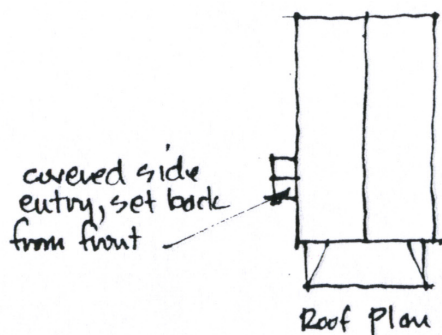 covered side
entry, set back
from front
Roof Plan